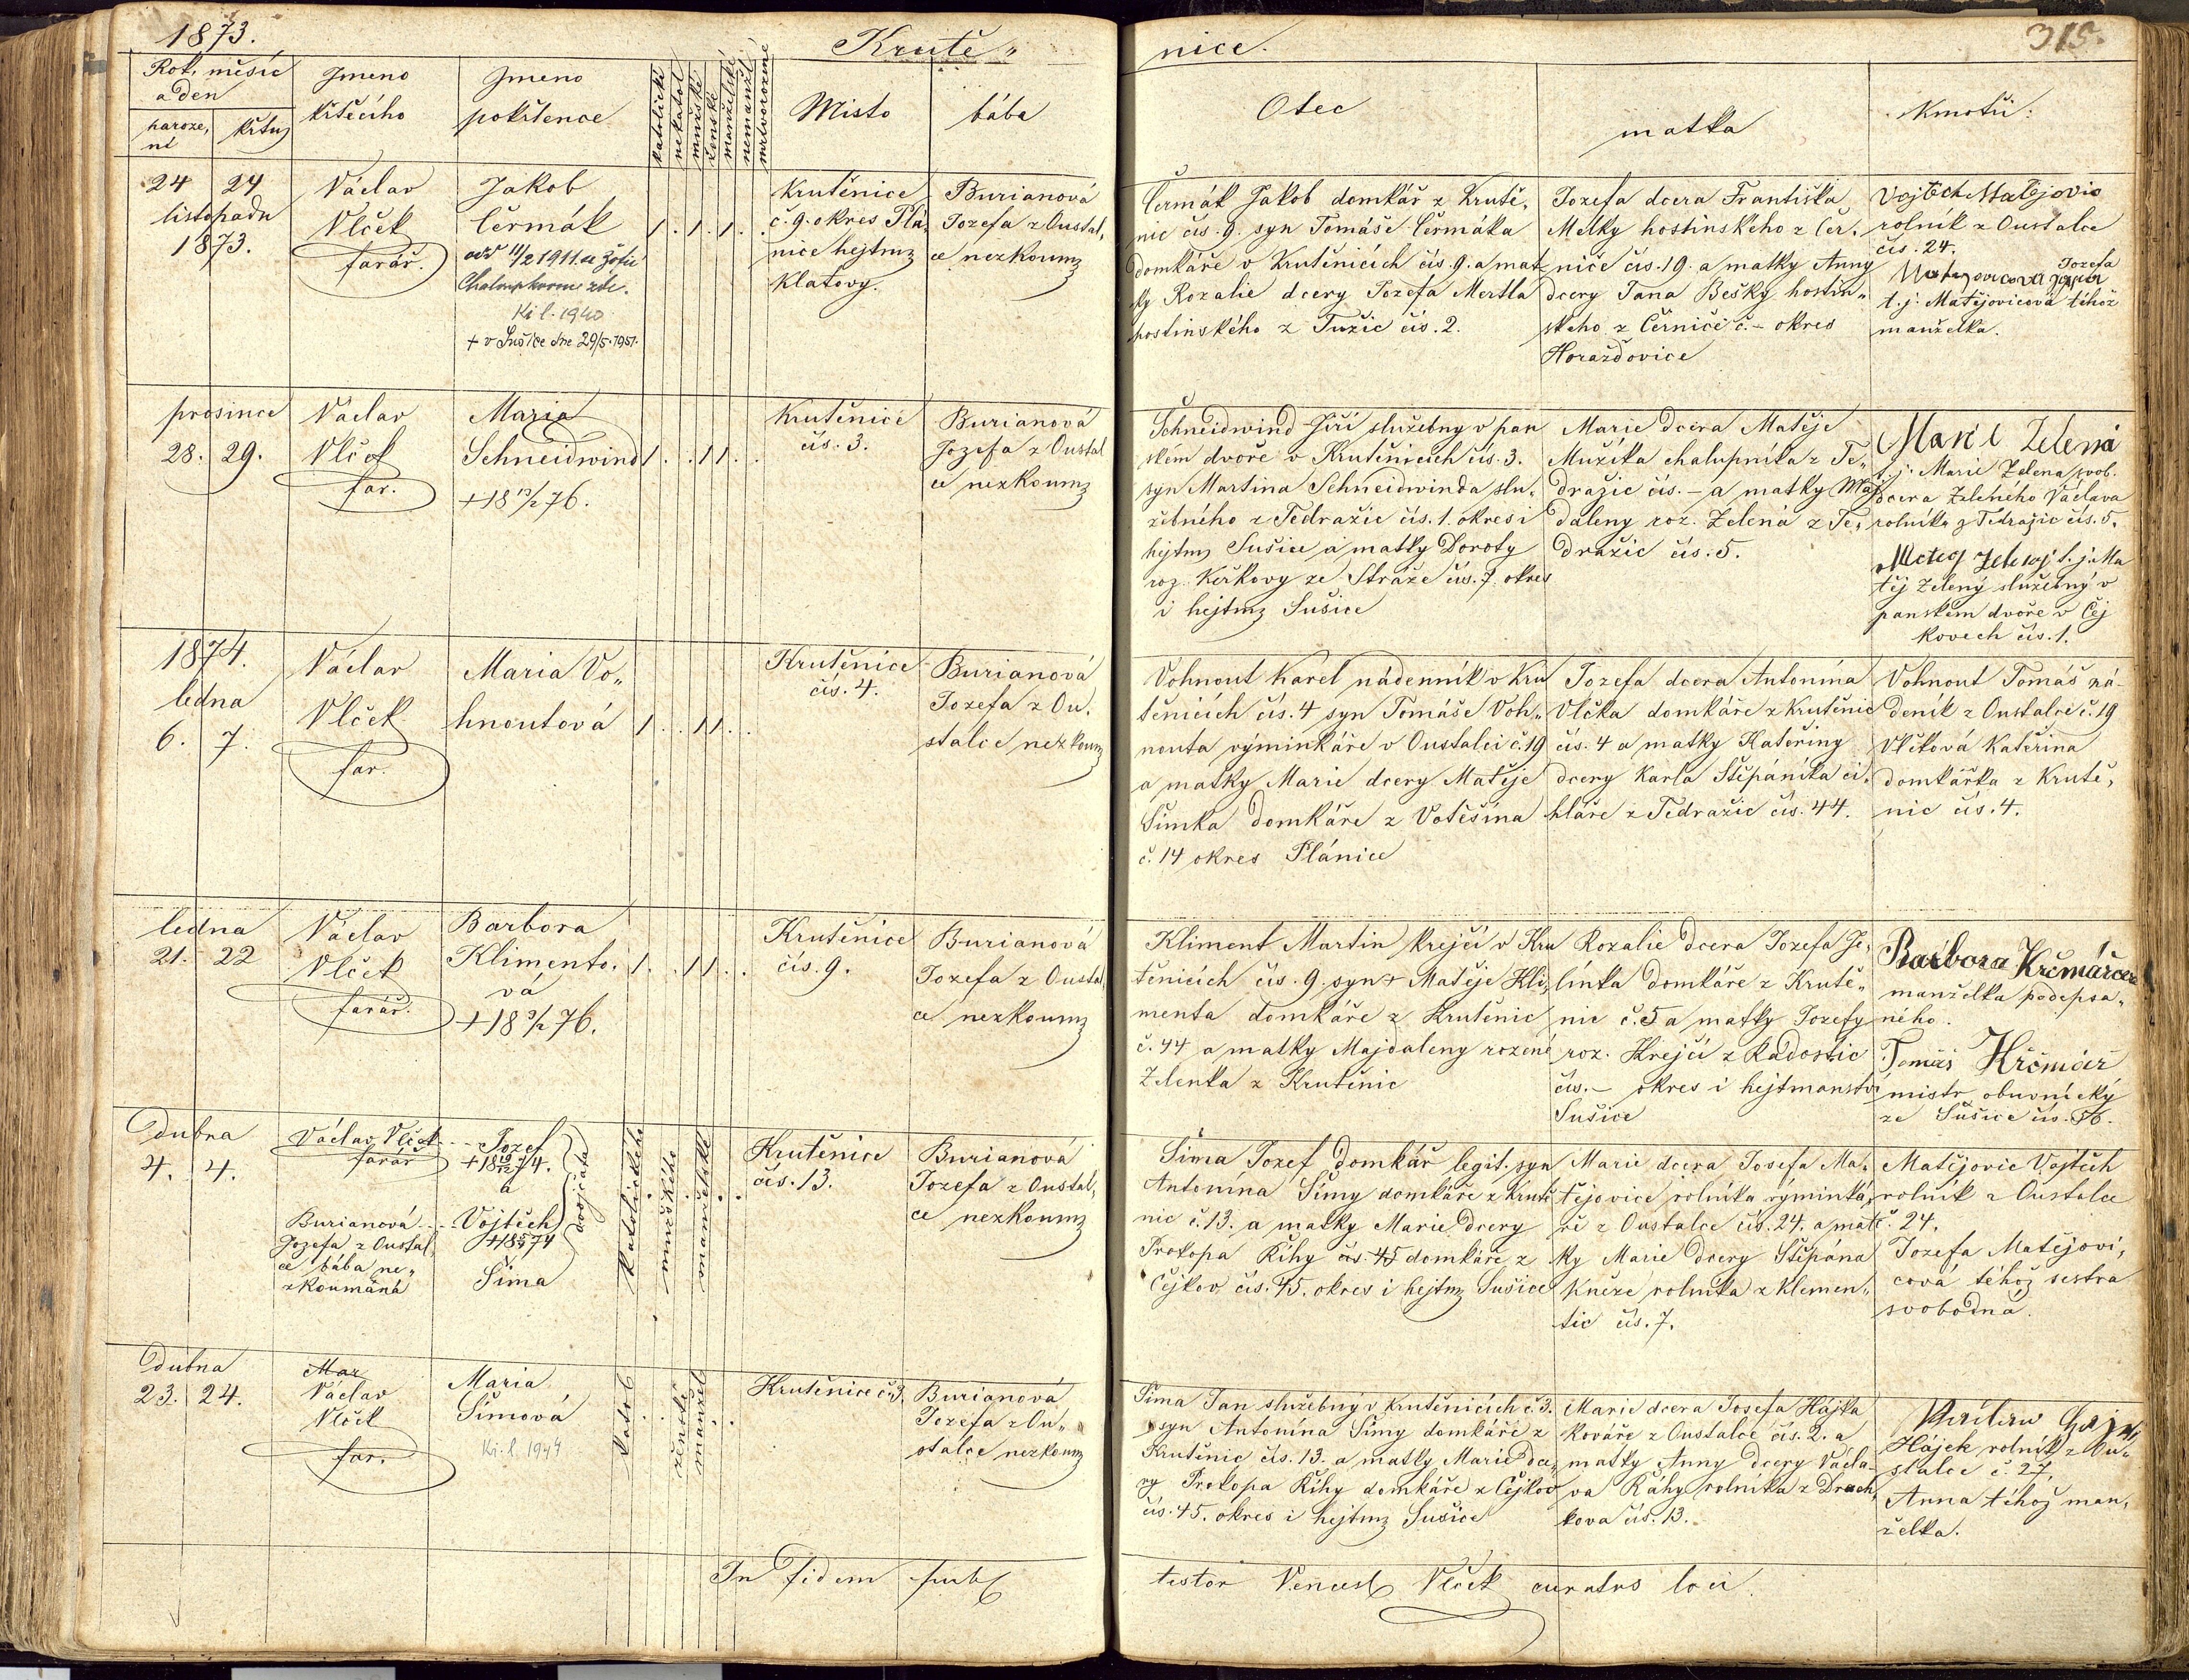 1873.
Krutě„
nice.
315.
Rok, měsíc
a den
naroze,
ní
křtu
Jmeno
křtěcího
Jmeno
pokřtence
katolické
nekatol
mužské
ženské
manželské
nemanžel
mrtvorozené
Místo
bába
Otec
matka
Kmotři:
24 24
listopadu
1873.
Václav
Vlček
farář.
Jakob
Čermák
odd 11/2 1911 se Žofií
Kř. l. 1940
+ v Sušice dne 29/5. 1951.
1. 1. 1.
Krutěnice
č. 9. okres Plá,
nice hejtm
Klatovy.
Burianová
Jozefa z Oustal,
ce nezkoum
Čermák Jakob domkář z Krutě,
nic čís. 9. syn Tomáše Čermáka
domkáře v Krutěnicích čís. 9. a mat
ky Rozalie dcery Jozefa Mertla
hostinského z Tužic čís. 2.
Jozefa dcera Františka
Melky hostinského z Čer,
niče čís. 19. a matky Anny
dcery Jana Bešky hostin„
ského z Černiče č. – okres
Horažďovice
Vojtěch Matějovic
rolník z Oustalce
čís. 24.
Jozefa
t. j. Matějovicová téhož
manželka.
prosince
28. 29.
Václav
Vlček
far.
Maria
Schneidwind
+ 18 13/2 76.
1. . 1 1 . .
Krutěnice
čís. 3.
Burianová
Jozefa z Oustal
ce nezkoum
Schneidwind Jiří služebny v pan
ském dvoře v Krutěnicích čís. 3.
syn Martina Schneidwinda slu,
žebného z Tedražic čís. 1. okres i
hejtm Sušice a matky Doroty
roz. Keřkovy ze Stráže čís. 7. okres
i hejtm Sušice
Marie dcera Matěje
Mužíka chalupníka z Te„
dražic čís. – a matky Maj
daleny roz. Zelená z Te„
dražic čís. 5.
Marie Zelená
t. j. Marie Zelena svob.
dcera Zeleného Václava
rolníka z Tedražic čís. 5.
Matej Zeleny t. j. Ma
těj Zelený služebný v
panském dvoře v Čej
kovech čís. 1.
1874.
ledna
6. 7.
Václav
Vlček
far.
Maria Vo„
hnoutová
1 . . 1 1 . .
Krutěnice
čís. 4.
Burianová
Jozefa z Ou,
stalce nezkoum
Vohnout Karel nádenník v Kru
těnicích čís. 4 syn Tomáše Voh„
nouta výminkáře v Oustalci č. 19
a matky Marie dcery Matěje
Šimka domkáře z Votěšina
č. 14 okres Plánice
Jozefa dcera Antonína
Vlčka domkáře z Krutěnic
čís. 4 a matky Kateřiny
dcery Karla Štěpánka ci,
hláře z Tedražic čís. 44.
Vohnout Tomáš ná-
deník z Oustalce č. 19
Vlčková Kateřina
domkářka z Krutě,
nic čís. 4.
ledna
21. 22
Václav
Vlček
farář.
Barbora
Klimento,
vá
+ 18 9/2 76.
1. . 1 1 . .
Krutěnice
čís. 9.
Burianová
Jozefa z Oustal
ce nezkoum
Kliment Martin krejčí v Kru
těnicích čís. 9. syn + Matěje Kli,
menta domkáře z Krutěnic
č. 44 a matky Majdaleny rozené
Zelenka z Krutěnic
Rozalie dcera Jozefa Je,
línka domkáře z Krutě„
nic č. 5 a matky Jozefy
roz. Krejčí z Radostic
čís. – okres i hejtmanství
Sušice
Barbora Krčmářová
manželka podepsa„
ného.
Tomáš Krčmář
mistr obuvnický
ze Sušice čís. 56.
Dubna
4. 4.
Václav Vlček
farář
Burianová
Jozefa z Oustal,
ce bába ne„
zkoumaná
Jozef
+ 18 19/12 74.
a
Vojtěch
Šíma
dvojčata
katolického
mužského
manželské
Krutěnice
čís. 13.
Burianová
Jozefa z Oustal,
ce nezkoum
Šíma Jozef domkář legit. syn
Antonína Šímy domkáře z Krutě
nic č. 13. a matky Marie dcery
Prokopa Říhy čís. 45 domkáře z
Čejkov čís. 45. okres i hejtm Sušice
Marie dcera Josefa Ma,
tějovice rolníka výminká,
ře z Oustalce čís. 24. a mat
ky Marie dcery Štěpána
Kněze rolníka z Klemen„
tic čís. 7.
Matějovic Vojtěch
rolník z Oustalce
č. 24.
Jozefa Matějovi,
cová téhož sestra
svobodná.
Dubna
23. 24.
Mar
Václav
Vlček
far.
Maria
Šímová
Kř. l. 1944
katol
ženské
manžel
Krutěnice č. 3.
Burianová
Jozefa z Ou„
stalce nezkoum
Šíma Jan služebný v Krutěnicích č. 3.
syn Antonína Šímy domkáře z
Krutěnic čís. 13. a matky Marie dce„
ry Prokopa Říhy domkáře z Čejkov
čís. 45. okres i hejtm Sušice
Marie dcera Josefa Hájka
kováře z Oustalce čís. 2. a
matky Anny dcery Václa-
va Ráhy rolníka z Drach,
kova čís. 13.
Hájek rolník z Ou„
stalce č. 27.
Anna téhož man,
želka.
In fidem
testor Vencesl Vlček curatus loci.